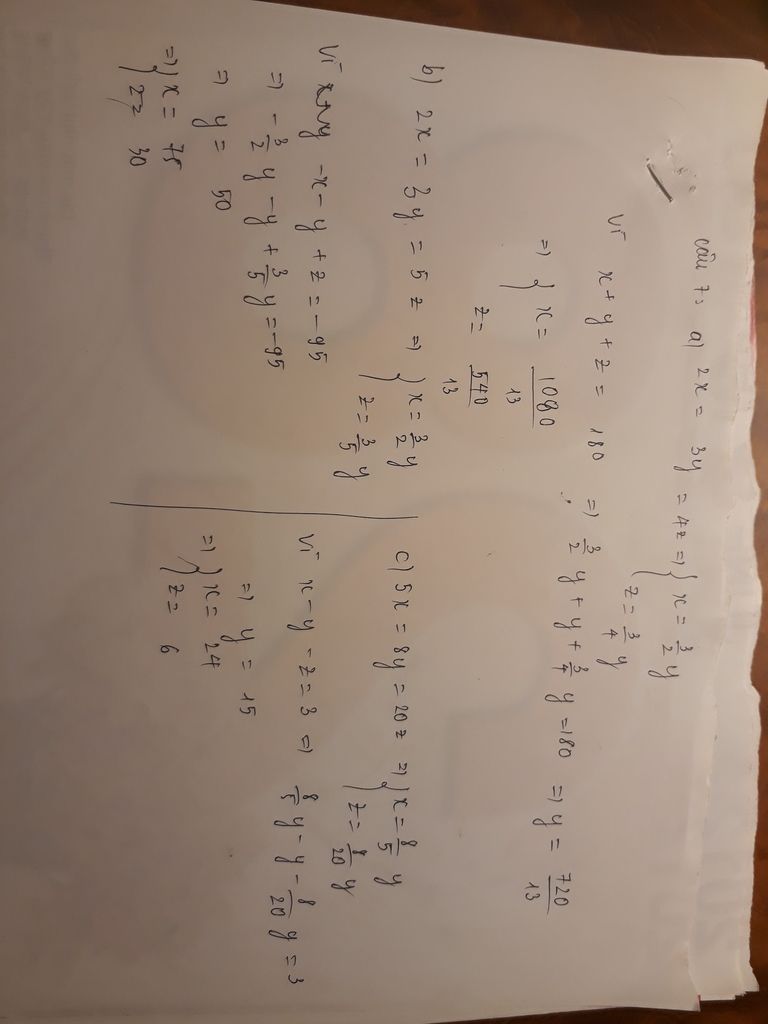 Câu 7: a) 2x = 3y = 4z => { x = 3/2 y
z = 3/4 y
Vì x + y + z = 180 => 3/2 y + y + 3/4 y = 180 => y = 720/13
=> { x = 1080/13
z = 540/13
b) 2x = 3y = 5z => { x = 3/2 y
z = 3/5 y
Vì -x - y + z = -95
=> - 3/2 y - y + 3/5 y = -95
=> y = 50
=> { x = 75
z = 30
c) 5x = 8y = 20z => { x = 8/5 y
z = 8/20 y
Vì x - y - z = 3 => 8/5 y - y - 8/20 y = 3
=> y = 15
=> { x = 24
z = 6